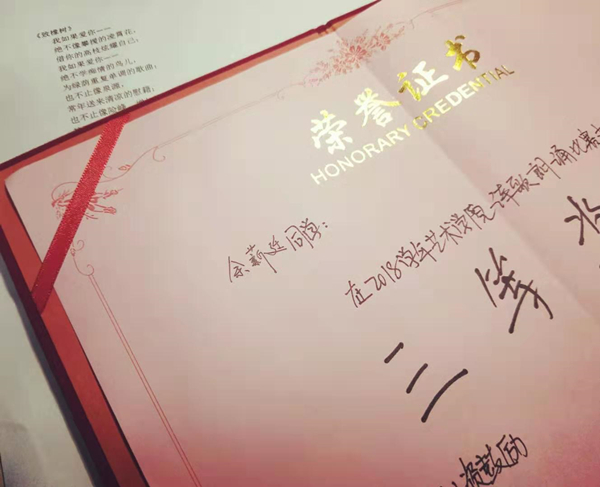 《致橡树》
我如果爱你——
绝不像攀援的凌霄花,
借你的高枝炫耀自己;
我如果爱你——
绝不学痴情的鸟儿,
为绿荫重复单调的歌曲;
也不止像泉源,
常年送来清凉的慰藉;
也不止像险峰
荣誉证书
HONORARY CREDENTIAL
余薪廷同学:
在2018学年艺术学院诗歌朗诵比赛
三等
以资鼓励